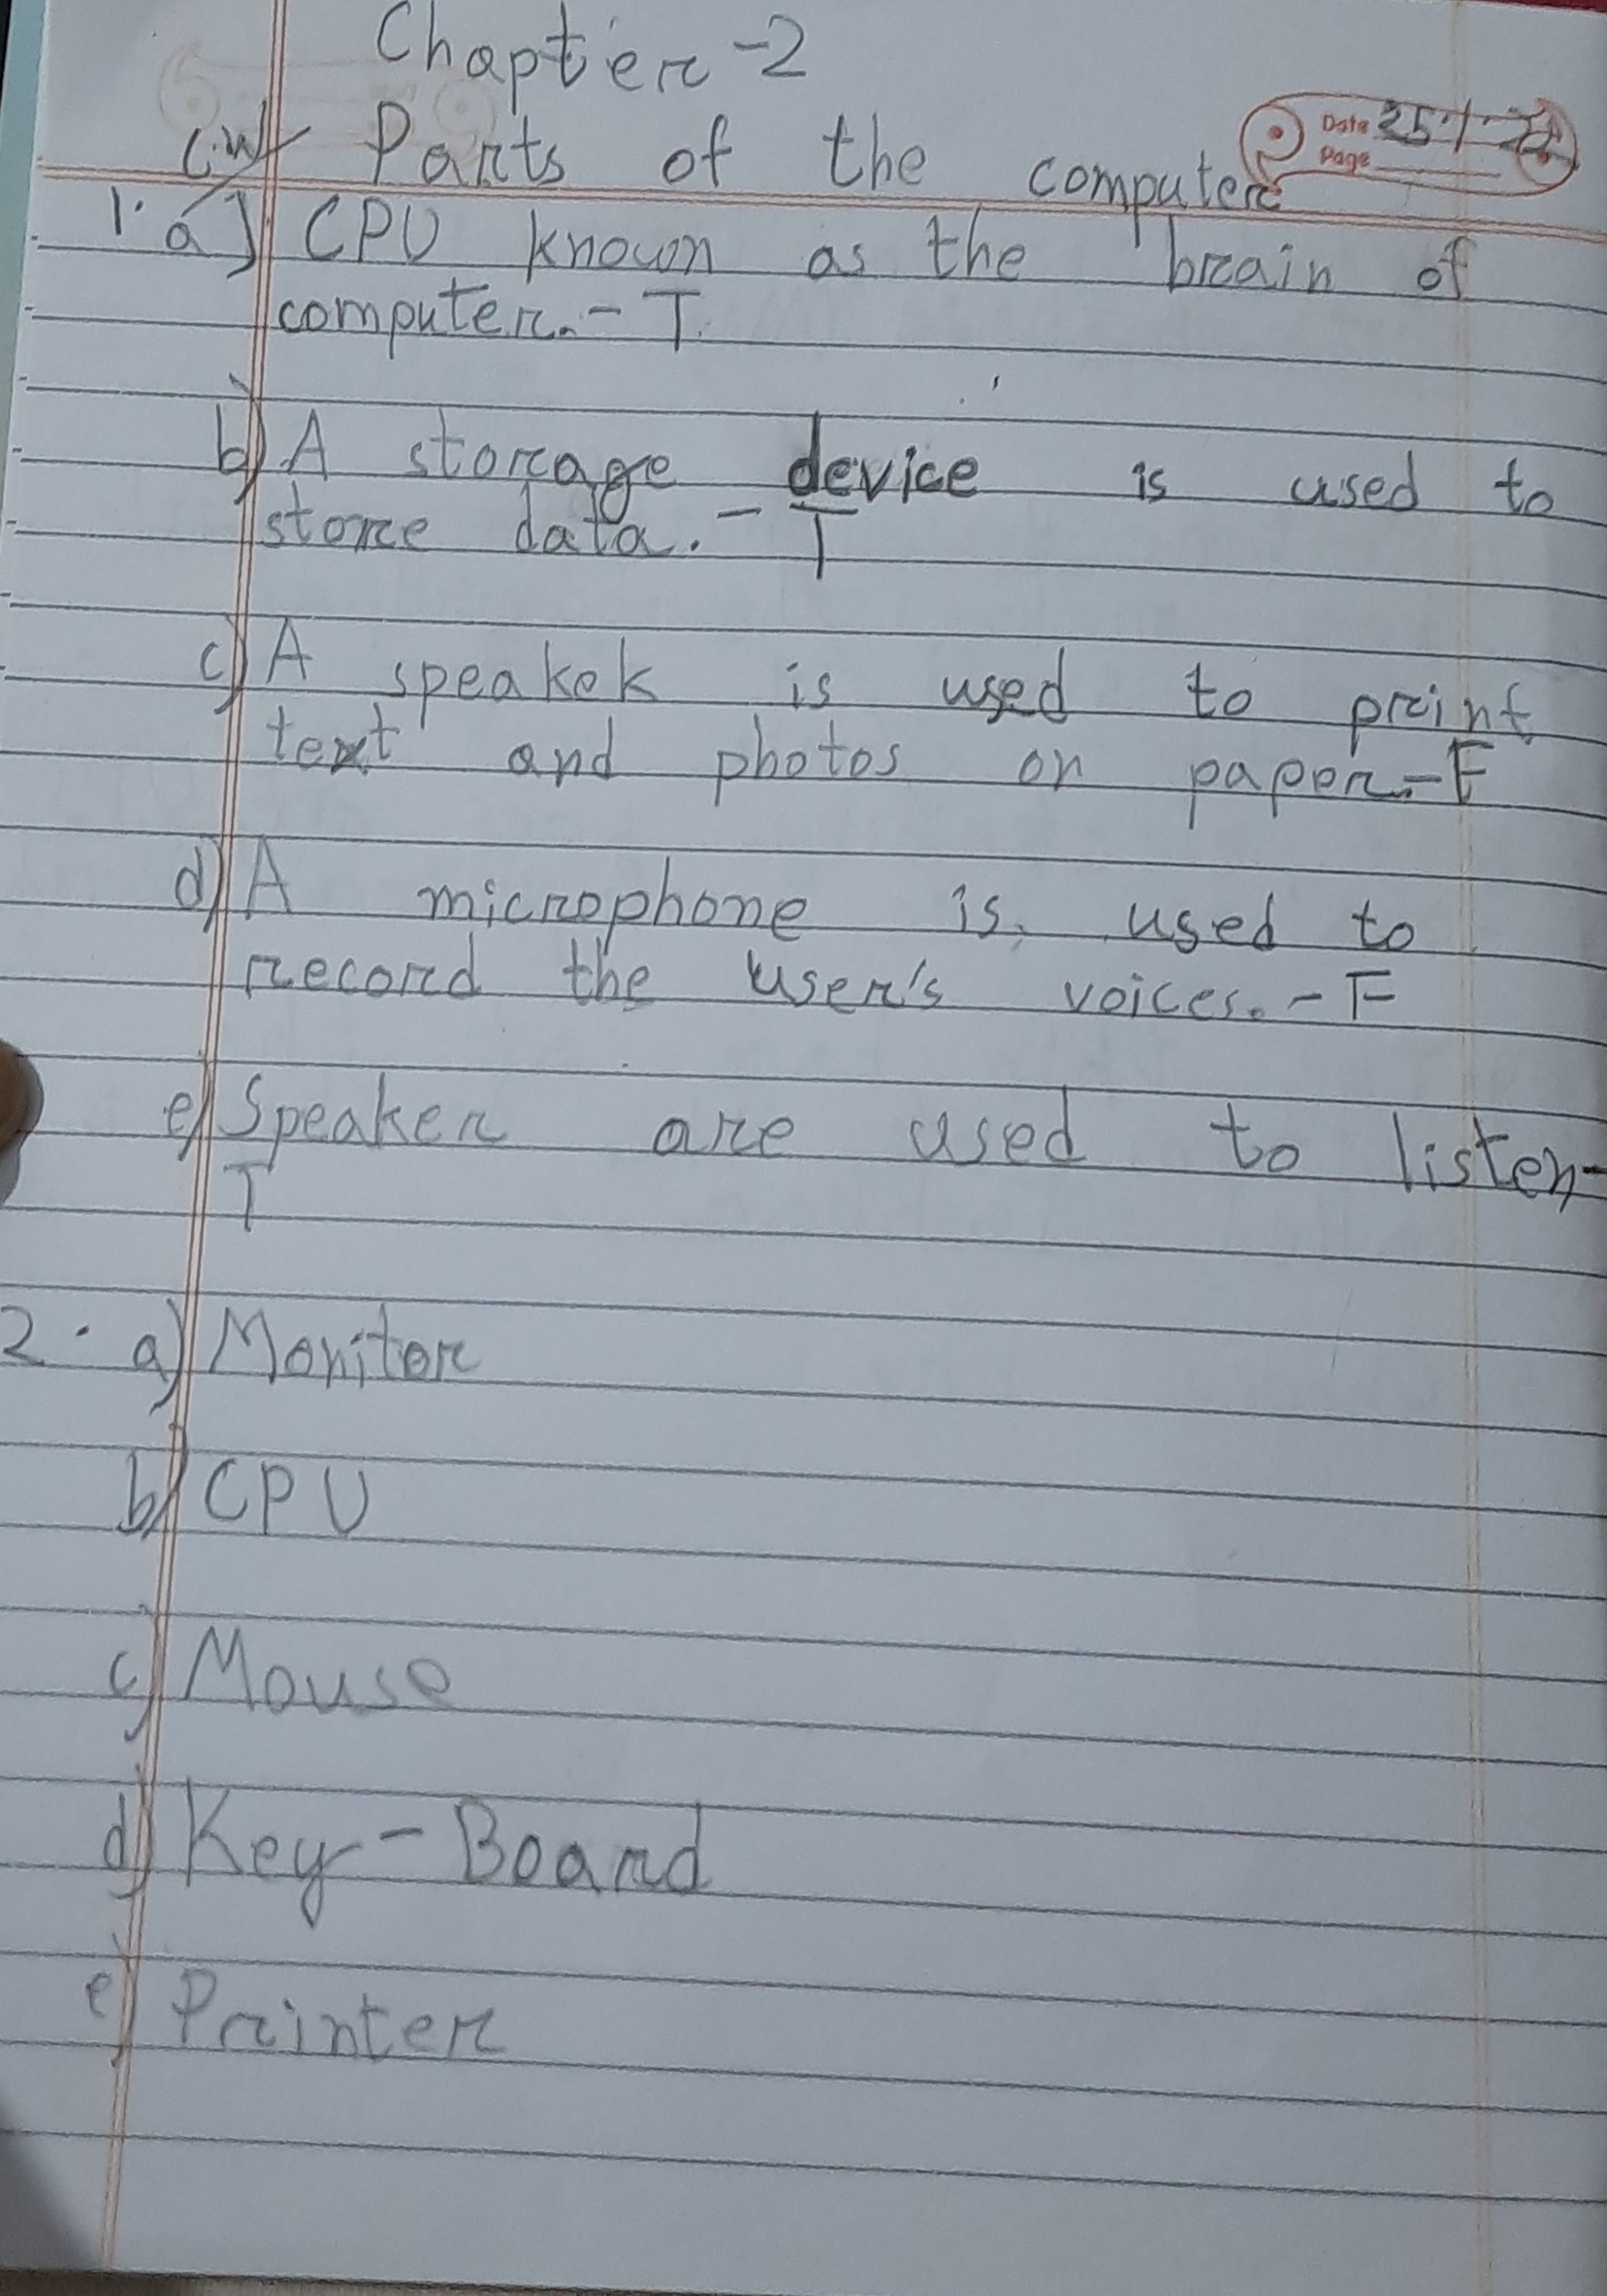 Chapter -2
C.W Parts of the computer
Date 25
Page
1. a) CPU known as the brain of
computer. - T.
b) A storage device is used to
store data. - T
c) A speakek is used to print
text and photos on paper. - F
d) A microphone is used to
record the user's voices. - F
e) Speaker are used to listen -
T
2. a) Monitor
b) CPU
c) Mouse
d) Key - Board
e) Printer